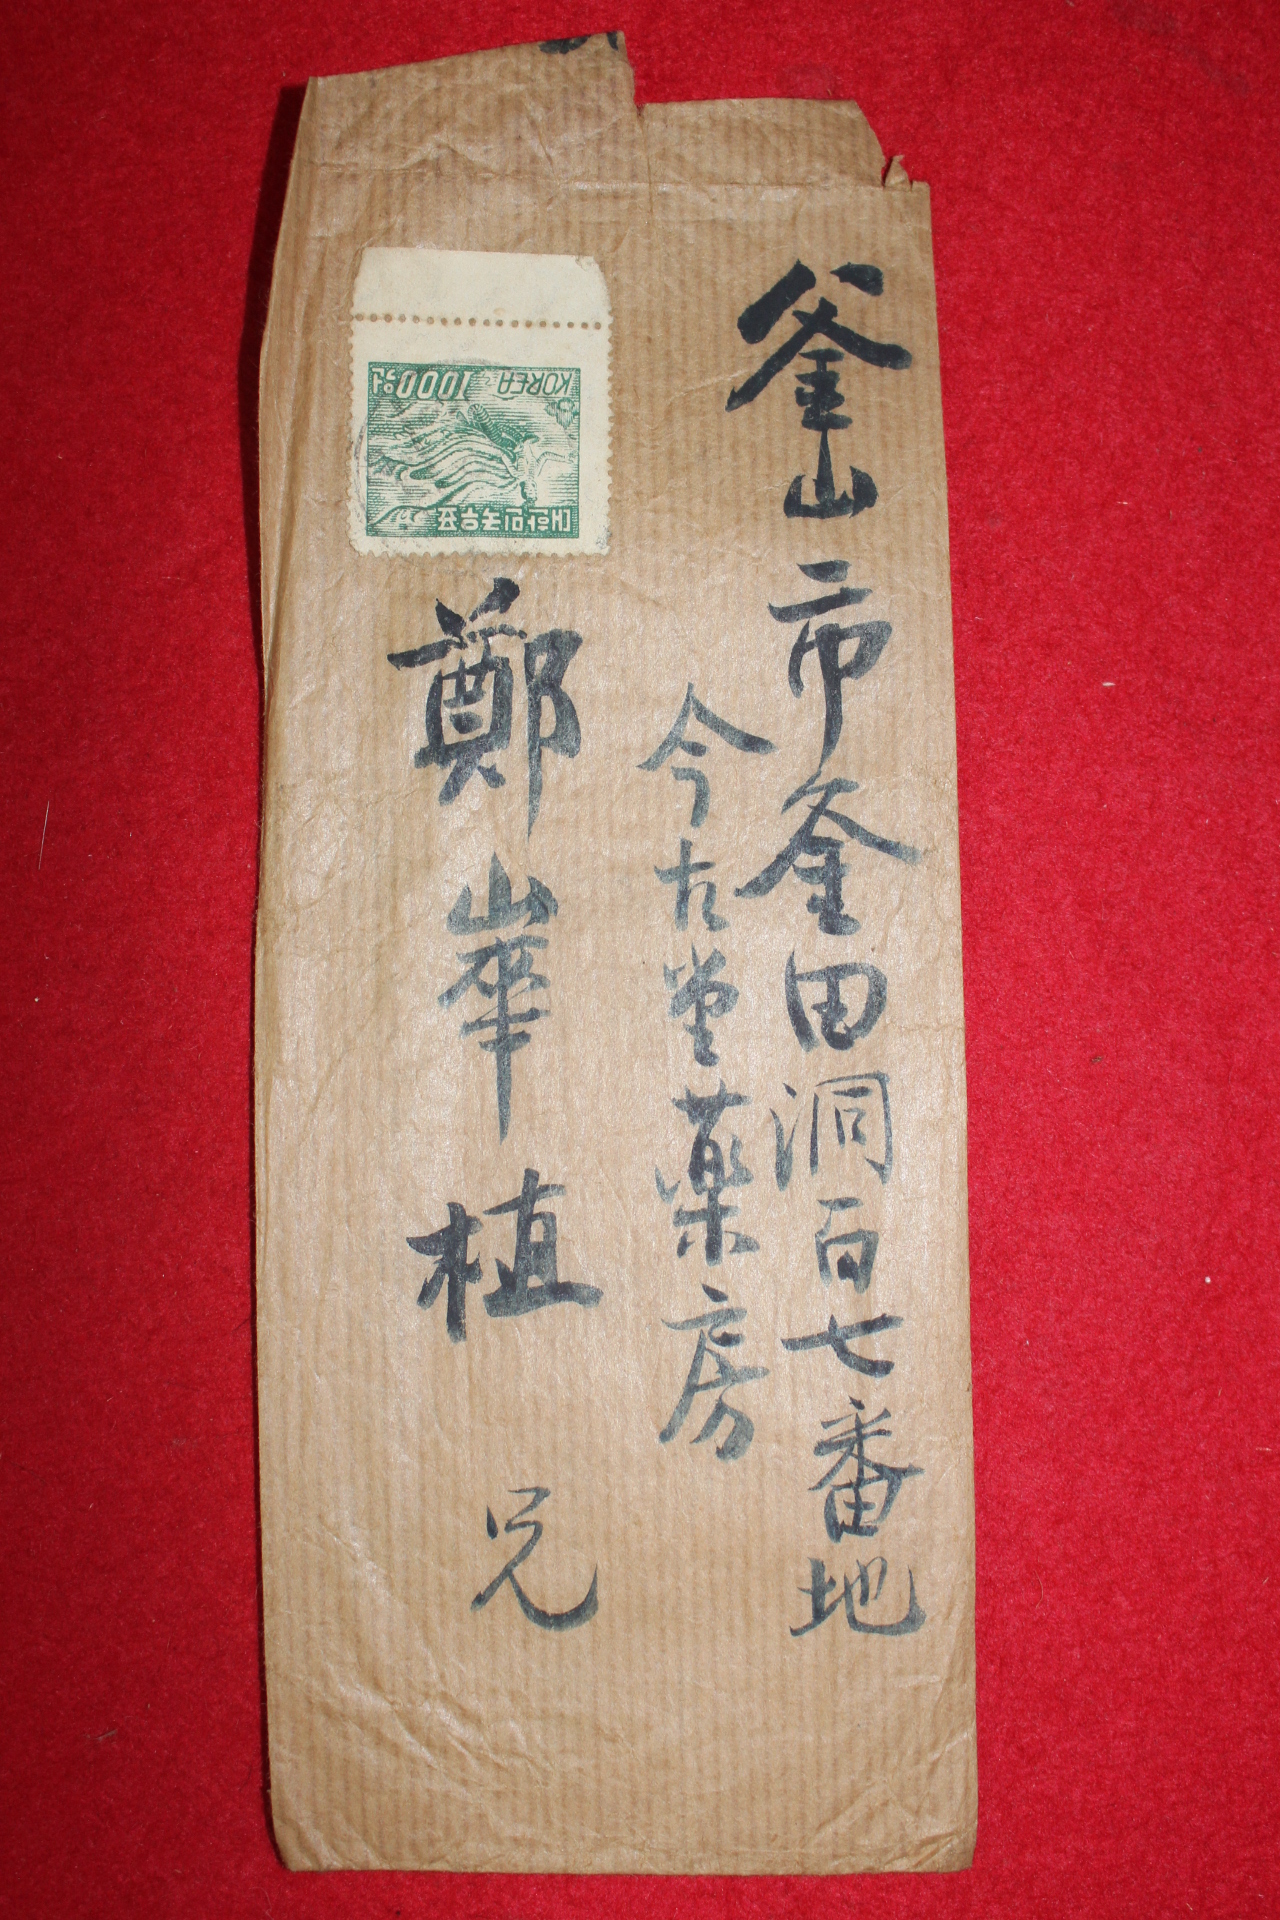 釜山市釜田洞百七番地
今古堂薬房
鄭崋植 兄
대한민국우표
KOREA 1000원